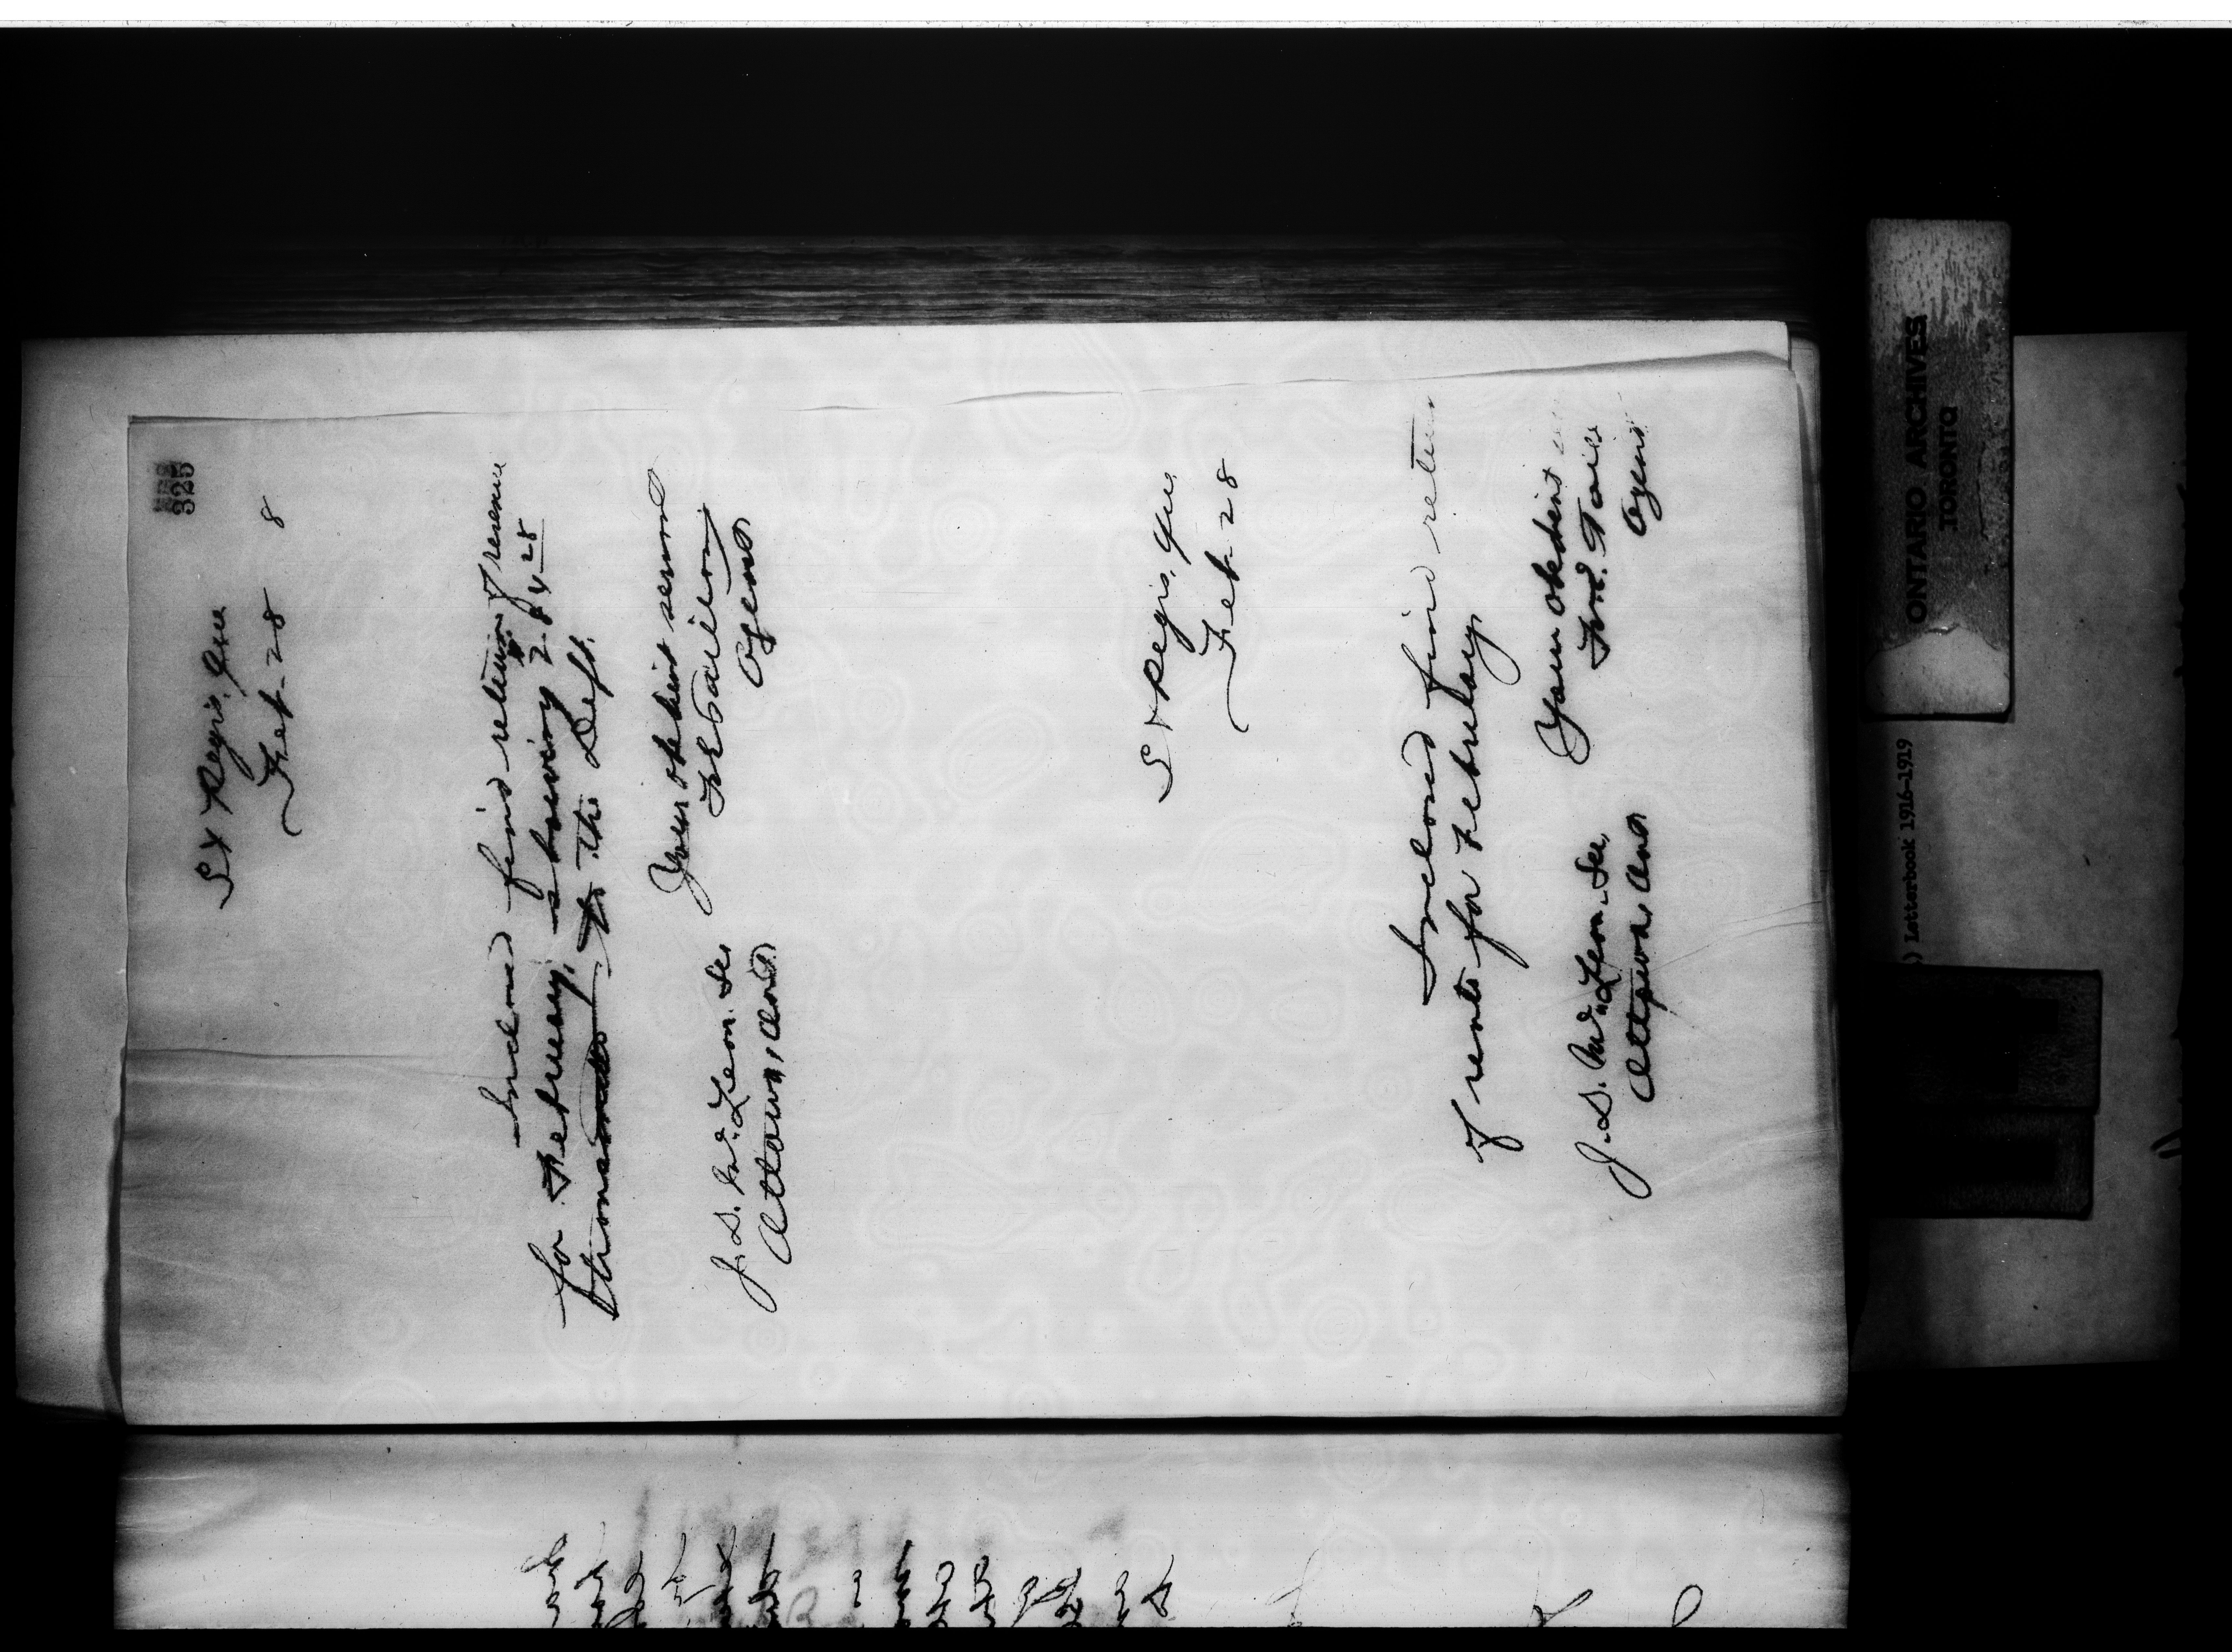 325
St Regis, Que
Feb 28 8
Inclosed find return of revenue
for February, showing
transmitted to the Dept.
Your obedient servant
F E Taillon
Agent
J. D. McLean. Sec
Ottawa, Ont
St Regis, Que
Feb 28
Inclosed find return
of rents for February
Your obedient
Agent
J. D. McLean. Sec,
Ottawa, Ont
ONTARIO ARCHIVES
TORONTO
) Letterbook 1916-1919